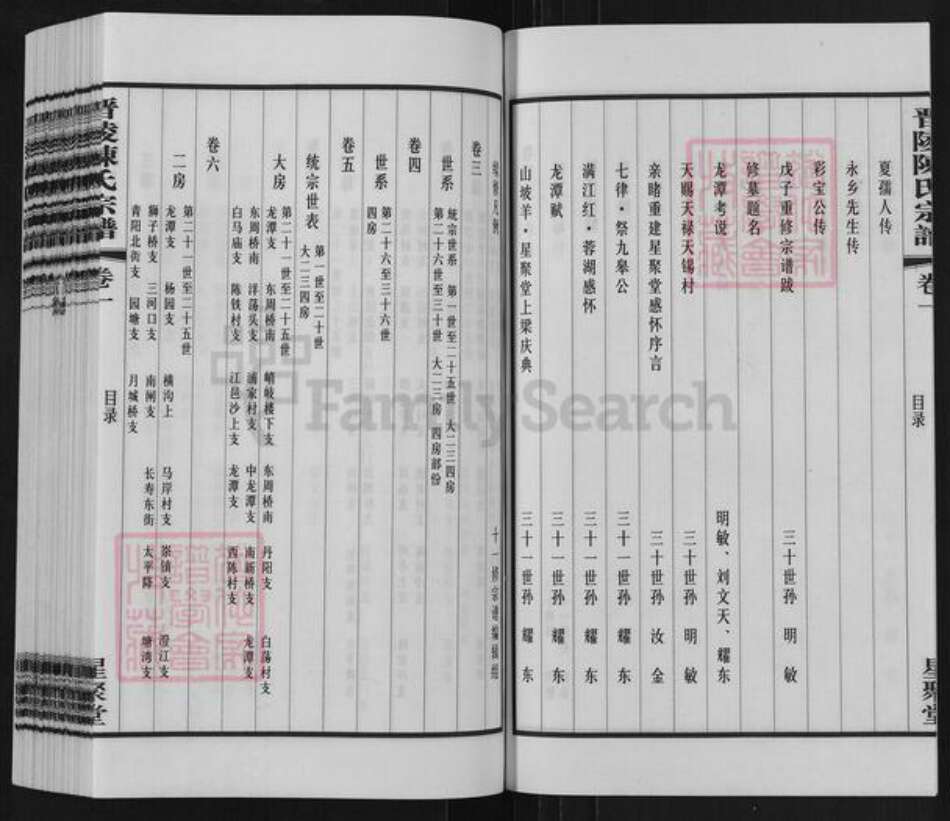 晋陵陳氏宗譜 卷一 目录 星聚堂
夏孺人传
永乡先生传
彩宝公传
戊子重修宗谱跋 三十世孙 明敏
修墓题名
龙潭考说 明敏、刘文天、耀东
天赐天禄天锡村 三十世孙 明敏
亲睹重建星聚堂感怀序言 三十世孙 汝金
七律·祭九皋公 三十一世孙 耀东
满江红·蓉湖感怀 三十一世孙 耀东
龙潭赋 三十一世孙 耀东
山坡羊·星聚堂上梁庆典 三十一世孙 耀东
卷三
世系 统宗世系 第一世至二十五世 大二三四房
第二十六世至三十世 大二三房 四房部份
卷四
世系 第二十六至三十六世
四房
卷五
统宗世表 第一世至二十世
大二三四房
大房 第二十一世至二十五世
龙潭支 东周桥南 嵴岐楼下支 东周桥南 丹阳支 白荡村支
东周桥南 洋荡头支 浦家村支 中龙潭支 南新桥支 龙潭支
白马庙支 陈铁村支 江邑沙上支 龙潭支 西陈村支
卷六
二房 第二十一世至二十五世
龙潭支 杨园支 横沟上 马岸村支 崇镇支 澄江支
狮子桥支 三河口支 南闸支 长寿东街 太平降 塘湾支
青阳北街支 园塘支 月城桥支
晋陵陳氏宗譜 卷一 目录 星聚堂
FamilySearch